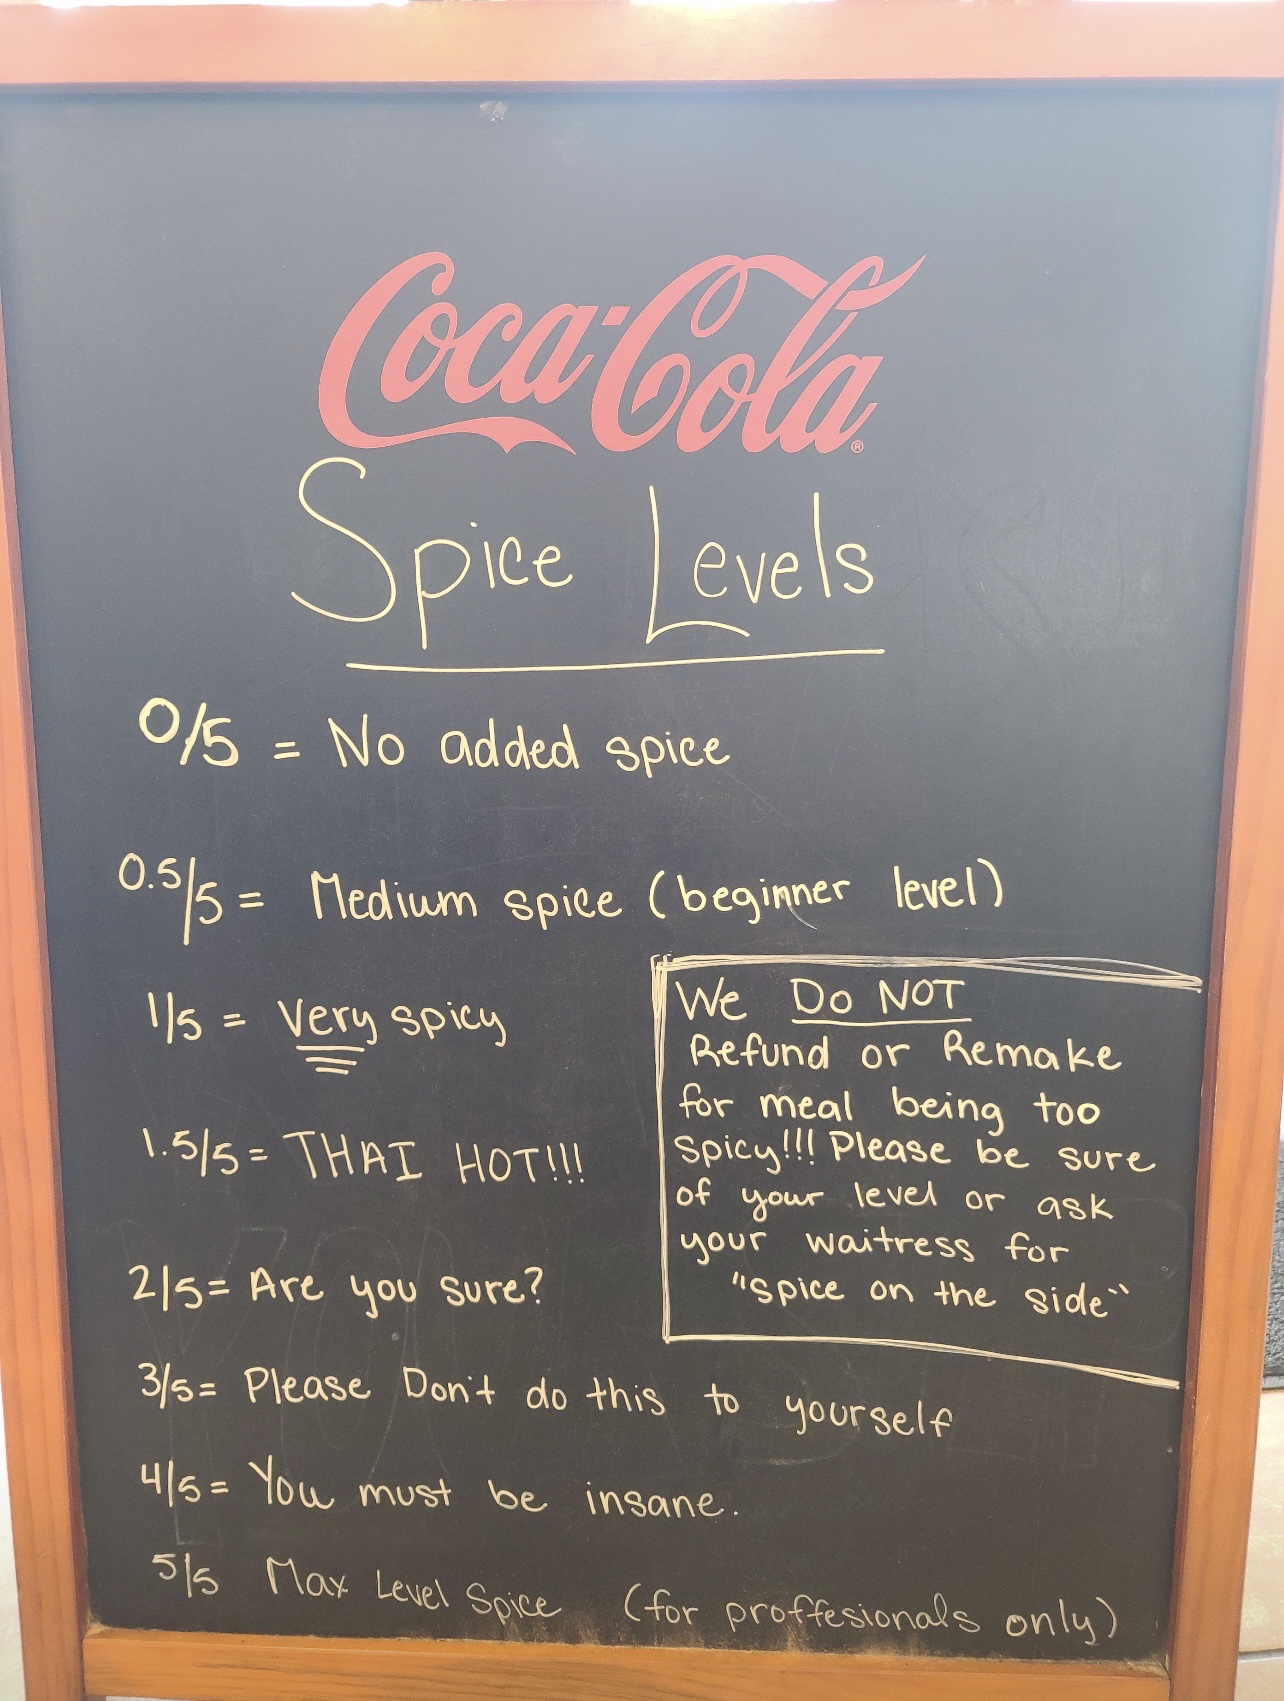 Coca-Cola®
Spice Levels
0/5 = No added spice
0.5/5 = Medium spice (beginner level)
1/5 = Very spicy
1.5/5 = THAI HOT!!!
2/5 = Are you sure?
3/5 = Please Don't do this to yourself
4/5 = You must be insane.
5/5 Max Level Spice (for proffesionals only)
We Do NOT
Refund or Remake
for meal being too
spicy!!! Please be sure
of your level or ask
your waitress for
"spice on the side"